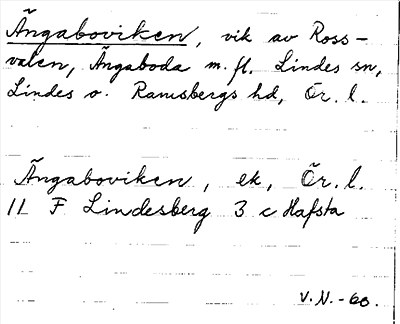 Ängaboviken, vik av Ross-
valen, Ängaboda m. fl. Lindes sn,
Lindes o. Ramsbergs hd, Ör. l.
Ängaboviken, ek, Ör. l.
11 F Lindesberg 3 c Hafsta
V. N. -60.